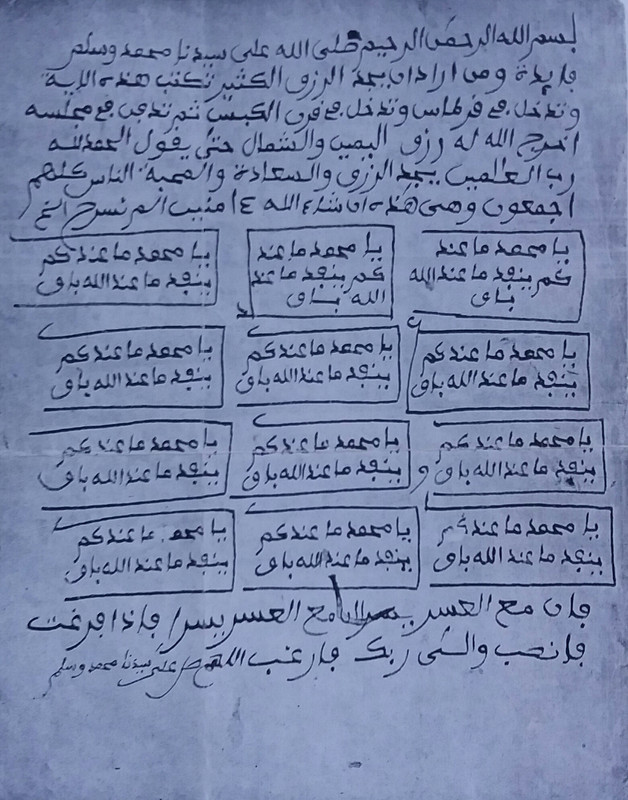 بسم الله الرحمن الرحيم صلى الله على سيدنا محمد وسلم
فايدة ومن اراد ان يجد الرزق الكثير تكتب هذه الاية
وتدخل في قرطاس وتدخل في قرن الكبش ثم تدفن في مجلسه
اخرج الله له رزق اليمين والشمال حتى يقول الحمد لله
رب العلمين يجد الرزق والسعادة والمحبة الناس كلهم
اجمعون وهي هذه ان شاء الله الم نشرح الخ
يا محمد ما عند
كم ينفد ما عند الله
باق
يا محمد ما عند
كم ينفد ما عند
الله باق
يا محمد ما عندكم
ينفد ما عند الله باق
يا محمد ما عندكم
ينفد ما عند الله باق
يا محمد ما عندكم
ينفد ما عند الله باق
يا محمد ما عندكم
ينفد ما عند الله باق
يا محمد ما عندكم
ينفد ما عند الله باق
يا محمد ما عندكم
ينفد ما عند الله باق
يا محمد ما عندكم
ينفد ما عند الله باق
يا محمد ما عندكم
ينفد ما عند الله باق
يا محمد ما عندكم
ينفد ما عند الله باق
يا محمد ما عندكم
ينفد ما عند الله باق
فإن مع العسر يسرا مع العسر يسرا فإذا فرغت
فانصب والى ربك فارغب اللهم صل على سيدنا محمد وسلم